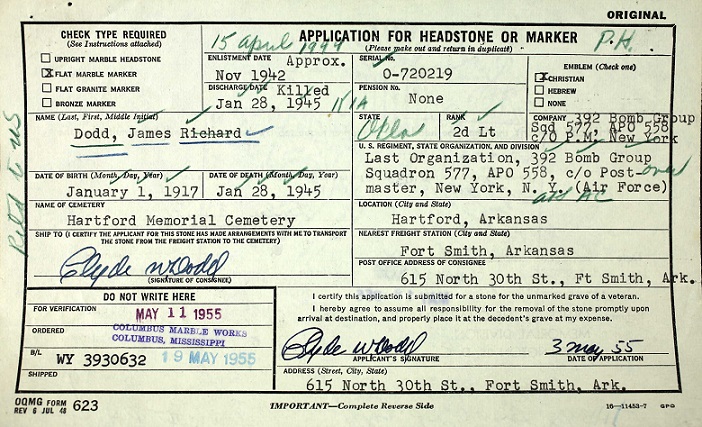 ORIGINAL
CHECK TYPE REQUIRED
(See Instructions attached)
UPRIGHT MARBLE HEADSTONE
X FLAT MARBLE MARKER
FLAT GRANITE MARKER
BRONZE MARKER
15 April 1944
APPLICATION FOR HEADSTONE OR MARKER
(Please make out and return in duplicate)
P.H.
ENLISTMENT DATE Approx.
Nov 1942
SERIAL No.
O-720219
EMBLEM (Check one)
X CHRISTIAN
HEBREW
NONE
DISCHARGE DATE Killed
Jan 28, 1945 KIA
PENSION No.
None
NAME (Last, First, Middle Initial)
Dodd, James Richard
STATE
Okla
RANK
2d Lt
COMPANY 392 Bomb Group
Sqd 577, APO 558
c/o P.M. New York
U. S. REGIMENT, STATE ORGANIZATION, AND DIVISION
Last Organization, 392 Bomb Group
Squadron 577, APO 558, c/o Post-
master, New York, N. Y. (Air Force)
over
AC
DATE OF BIRTH (Month, Day, Year)
January 1, 1917
DATE OF DEATH (Month, Day, Year)
Jan 28, 1945
NAME OF CEMETERY
Hartford Memorial Cemetery
LOCATION (City and State)
Hartford, Arkansas
SHIP TO (I CERTIFY THE APPLICANT FOR THIS STONE HAS MADE ARRANGEMENTS WITH ME TO TRANSPORT
THE STONE FROM THE FREIGHT STATION TO THE CEMETERY)
Clyde W Dodd
(SIGNATURE OF CONSIGNEE)
NEAREST FREIGHT STATION (City and State)
Fort Smith, Arkansas
POST OFFICE ADDRESS OF CONSIGNEE
615 North 30th St., Ft Smith, Ark.
DO NOT WRITE HERE
FOR VERIFICATION
MAY 11 1955
ORDERED
COLUMBUS MARBLE WORKS
COLUMBUS, MISSISSIPPI
B/L
WY 3930632
19 MAY 1955
SHIPPED
I certify this application is submitted for a stone for the unmarked grave of a veteran.
I hereby agree to assume all responsibility for the removal of the stone promptly upon
arrival at destination, and properly place it at the decedent's grave at my expense.
Clyde W Dodd
APPLICANT'S SIGNATURE
3 May 55
DATE OF APPLICATION
ADDRESS (Street, City, State)
615 North 30th St., Fort Smith, Ark.
OQMG FORM
REV 6 JUL 48 623
IMPORTANT—Complete Reverse Side
16—11453-7 GPO